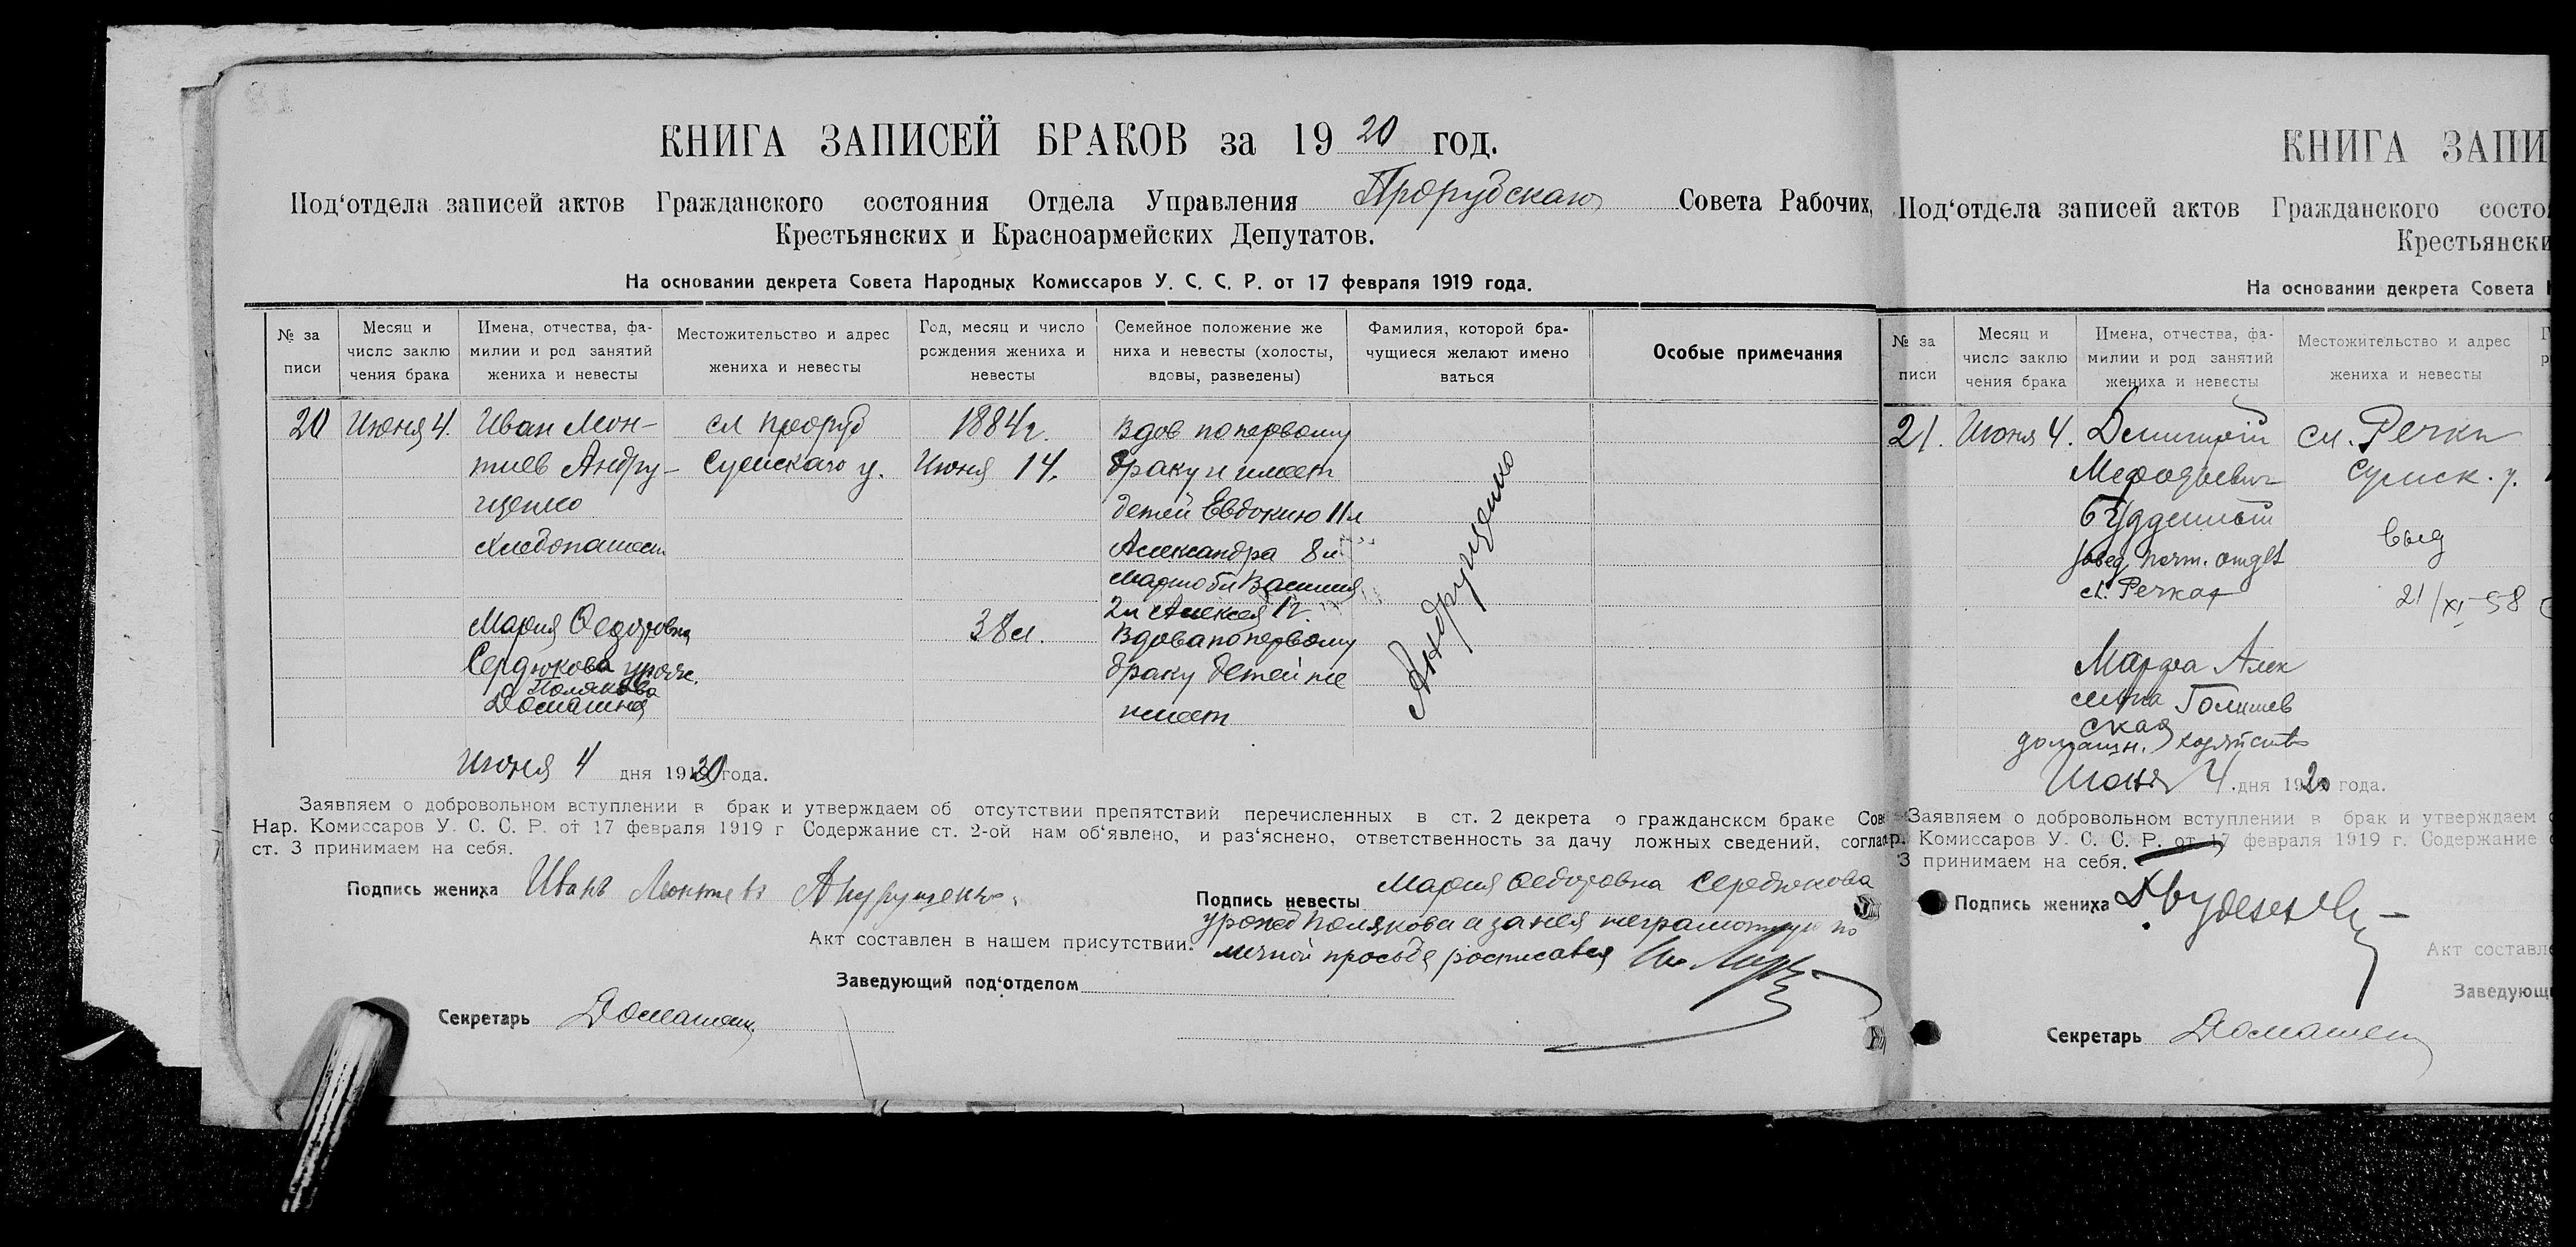 КНИГА ЗАПИСЕЙ БРАКОВ за 1920 год.
Под‘отдела записей актов Гражданского состояния Отдела Управления Прорубскаго Совета Рабочих,
Крестьянских и Красноармейских Депутатов.
На основании декрета Совета Народных Комиссаров У. С. С. Р. от 17 февраля 1919 года.
№ за писи
Месяц и число заклю чения брака
Имена, отчества, фа- милии и род занятий жениха и невесты
Местожительство и адрес жениха и невесты
Год, месяц и число рождения жениха и невесты
Семейное положение же ниха и невесты (холосты, вдовы, разведены)
Фамилия, которой бра- чущиеся желают имено ваться
Особые примечания
20 Июня 4. Иван Леон- сл Проруб 1884г. Вдов по первому
тиев Андру- Сумскаго у. Июня 14. браку и имеет
щенко детей Евдокию 11л
Хлебопашец Александра 8л
Василия
2л Алексея 1г.
Андрущенко
Мария Федоровна 38л. Вдова по первому
Сердюкова урожд. браку детей не
Полякова
Домашняя имеет
Июня 4 дня 1920 года.
Заявляем о добровольном вступлении в брак и утверждаем об отсутствии препятствий перечисленных в ст. 2 декрета о гражданском браке Сов
Нар. Комиссаров У. С. С. Р. от 17 февраля 1919 г Содержание ст. 2-ой нам об‘явлено, и раз‘яснено, ответственность за дачу ложных сведений, соглас
ст. 3 принимаем на себя.
Подпись жениха Иванъ Леонтиевъ Андрущенко.
Подпись невесты Мария Федоровна Сердюкова
урожд Полякова а за нея неграмотную по
Акт составлен в нашем присутствии.
личной просьбе росписался
Заведующий под‘отделом
Секретарь Домашен
КНИГА ЗАПИ
Под‘отдела записей актов Гражданского состоя
Крестьянски
На основании декрета Совета Н
№ за писи
Месяц и число заклю чения брака
Имена, отчества, фа- милии и род занятий жениха и невесты
Местожительство и адрес жениха и невесты
21. Июня 4. Димитрий сл. Речки
Мефодиевич Сумск. у.
Будденный
завед. почт. отдел выд
сл. Речках 21/XI-58
Марфа Алек
сеевна Голишев
ская
домашн. хозяйство
Июня 4 дня 1920 года.
Заявляем о добровольном вступлении в брак и утверждаем о
р. Комиссаров У. С. С. Р. от 17 февраля 1919 г. Содержание с
3 принимаем на себя.
Подпись жениха
Акт составле
Заведующи
Секретарь Домашен